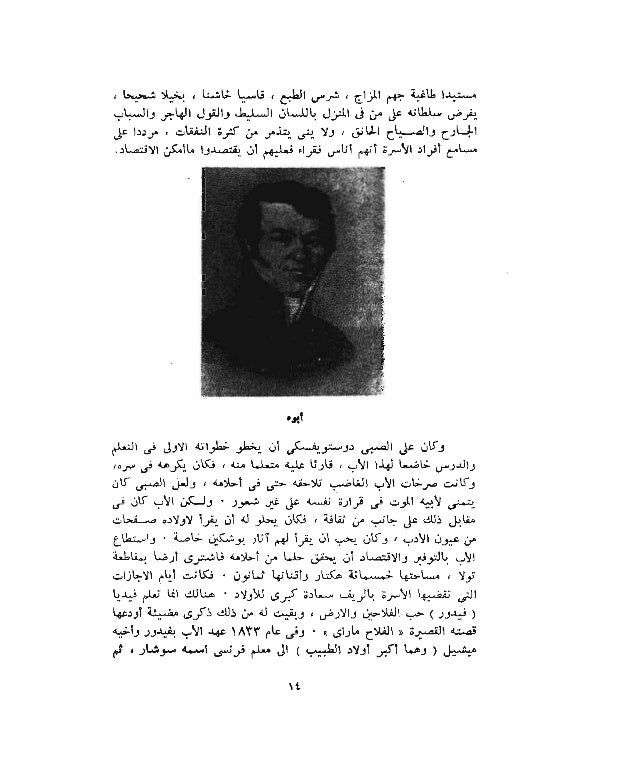 مستبدا طاغية جهم المزاج ، شرس الطبع ، قاسيا خاشنا ، بخيلا شحيحا ،
يفرض سلطانه على من فى المنزل باللسان السليط والقول الهاجر والسباب
الجارح والصياح الحانق ، ولا ينى يتذمر من كثرة النفقات ، مرددا على
مسامع أفراد الأسرة أنهم أناس فقراء فعليهم أن يقتصدوا ماأمكن الاقتصاد.
أبوه
وكان على الصبى دوستويفسكى أن يخطو خطواته الاولى فى التعلم
والدرس خاضعا لهذا الأب ، قارئا عليه متعلما منه ، فكان يكرهه فى سره،
وكانت صرخات الأب الغاضب تلاحقه حتى فى أحلامه ، ولعل الصبى كان
يتمنى لأبيه الموت فى قرارة نفسه على غير شعور · ولكن الأب كان فى
مقابل ذلك على جانب من ثقافة ، فكان يحلو له أن يقرأ لاولاده صفحات
من عيون الأدب ، وكان يحب ان يقرأ لهم آثار بوشكين خاصة · واستطاع
الأب بالتوفير والاقتصاد أن يحقق حلما من أحلامه فاشترى أرضا بمقاطعة
تولا ، مساحتها خمسمائة هكتار وأقنانها ثمانون · فكانت أيام الاجازات
التى تقضيها الأسرة بالريف سعادة كبرى للأولاد · هنالك انما تعلم فيديا
( فيدور ) حب الفلاحين والارض ، وبقيت له من ذلك ذكرى مضيئة أودعها
قصته القصيرة « الفلاح ماراى » · وفى عام ١٨٣٣ عهد الأب بفيدور وأخيه
ميشيل ( وهما أكبر أولاد الطبيب ) الى معلم فرنسى اسمه سوشار ، ثم
١٤